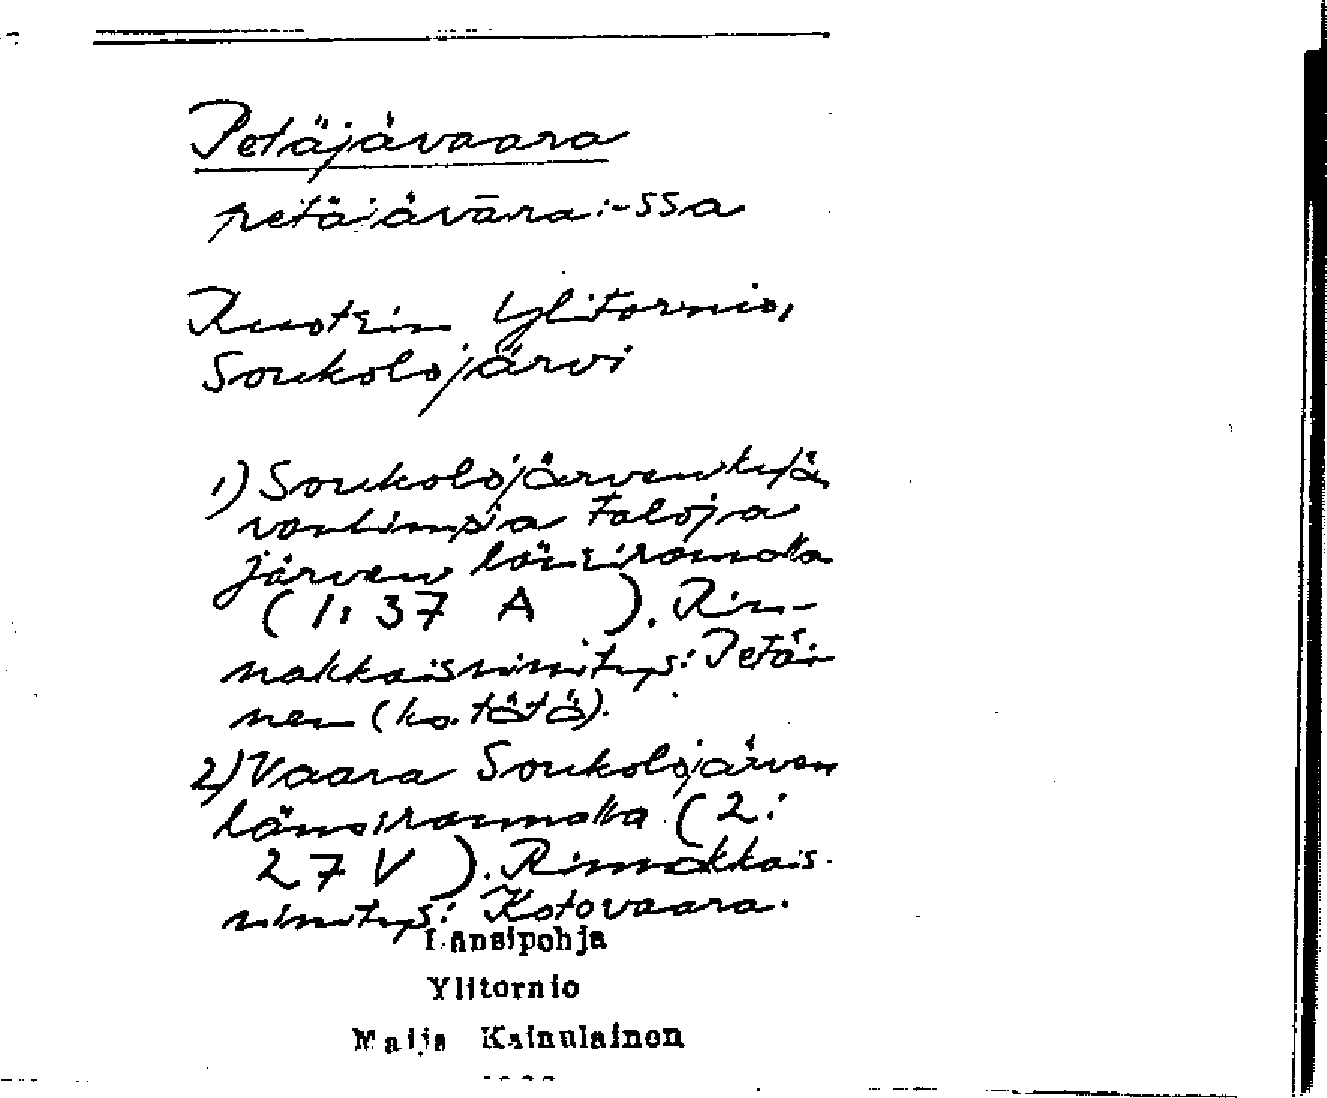 Petäjävaara
petäjävāra:-ssa
Ruotsin Ylitornio,
Soukolojärvi
1) Soukolojärven kylä
vanhimpia taloja
järven länsirannalla
(1:37 A ). Rin-
nakkaisnimitys: Petäi-
nen (ks. tätä).
2) Vaara Soukolojärven
länsirannalla (2:
27 V ). Rinnakkais-
nimitys: Kotovaara.
Länsipohja
Ylitornio
Maija Kainulainen